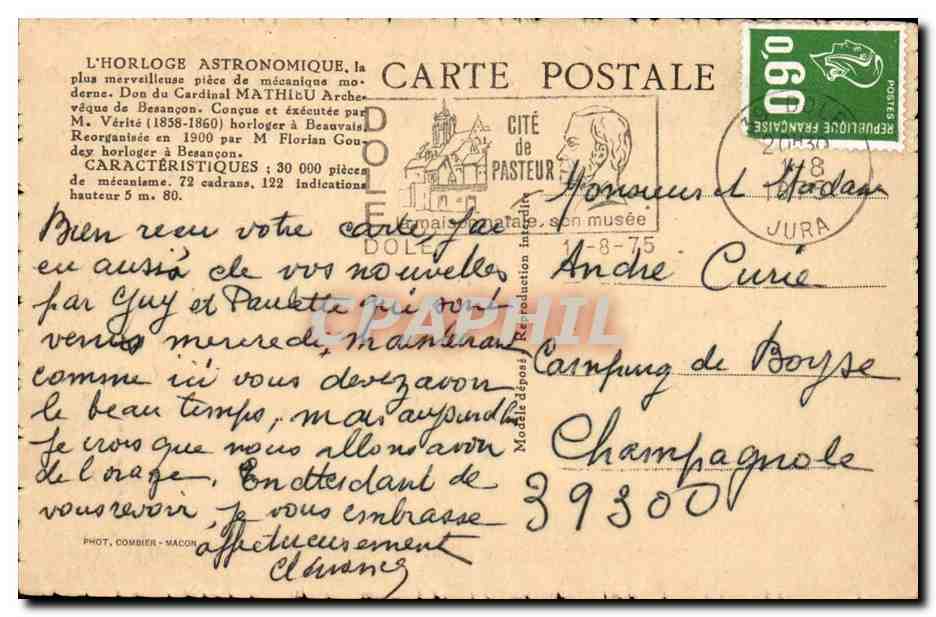 L'HORLOGE ASTRONOMIQUE, la
plus merveilleuse pièce de mécanique mo-
derne. Don du Cardinal MATHIEU Arche-
vêque de Besançon. Conçue et éxécutée par
M. Vérité (1858-1860) horloger à Beauvais.
Reorganisée en 1900 par M Florian Gou-
dey horloger à Besançon.
CARACTÉRISTIQUES : 30 000 pièces
de mécanisme. 72 cadrans, 122 indications
hauteur 5 m. 80.
CARTE POSTALE
DOLE
CITÉ
de
PASTEUR
sa maison natale, son musée
DOLE 11-8-75
20H30
JURA
0,60
POSTES
REPUBLIQUE FRANÇAISE
Bien reçu votre carte, j'ai
eu aussi de vos nouvelles
par Guy et Paulette qui sont
venus mercredi, maintenant
comme ici vous devez avoir
le beau temps, mais aujourd'hui
je crois que nous allons avoir
de l'orage. En attendant de
vous revoir, je vous embrasse
affectueusement
Monsieur et Madame
André Curie
Camping de Boyse
Champagnole
39300
Modèle déposé. Reproduction interdite
PHOT. COMBIER - MACON
CPAPHIL